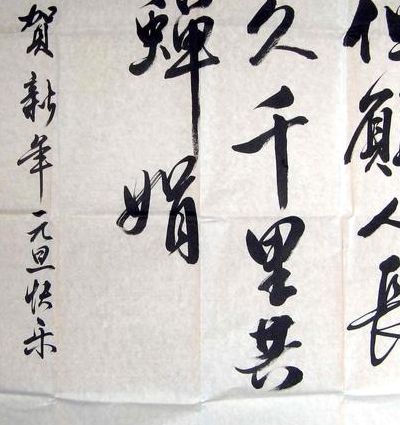 但願人長
久千里共
蟬娟
賀新年元旦快乐